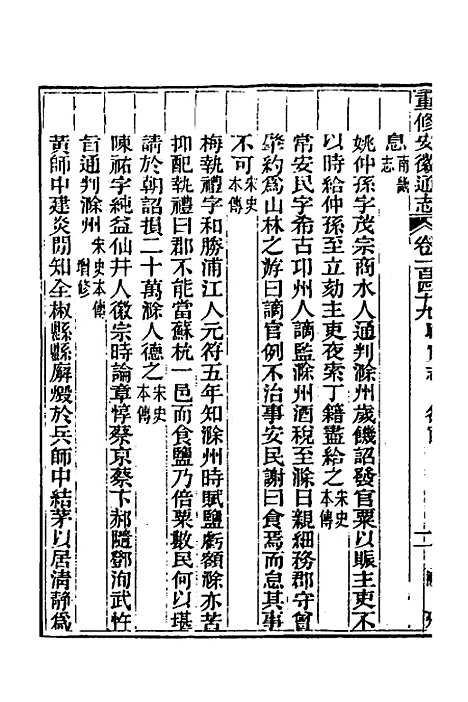 重修安徽通志 卷一百四十九 職官志 名宦
息 南畿志
姚仲孫字茂宗商水人通判滁州歲饑詔發官粟以賑主吏不
以時給仲孫至立劾主吏夜索丁籍盡給之 宋史本傳
常安民字希古邛州人謫監滁州酒稅至滁日親細務郡守曾
肇約爲山林之游曰謫官例不治事安民謝曰食焉而怠其事
不可 宋史本傳
梅執禮字和勝浦江人元符五年知滁州時賦鹽虧額滁亦苦
抑配執禮曰郡不能當蘇杭一邑而食鹽乃倍粟數民何以堪
請於朝詔損二十萬滁人德之 宋史本傳
陳祐字純益仙井人徽宗時論章惇蔡京蔡卞郝隨鄧洵武忤
旨通判滁州 宋史本傳增修
黃師中建炎間知全椒縣縣廨燬於兵師中結茅以居清靜爲